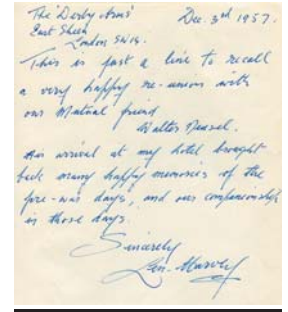 The 'Derby Arms' Dec. 3rd 1957.
East Sheen
London SW14.
This is just a line to recall
a very happy re-union with
our Mutual friend
Walter Neusel.
His arrival at my hotel brought
back many happy memories of the
pre-war days, and our companionship
in those days.
Sincerely
Len. Harvey